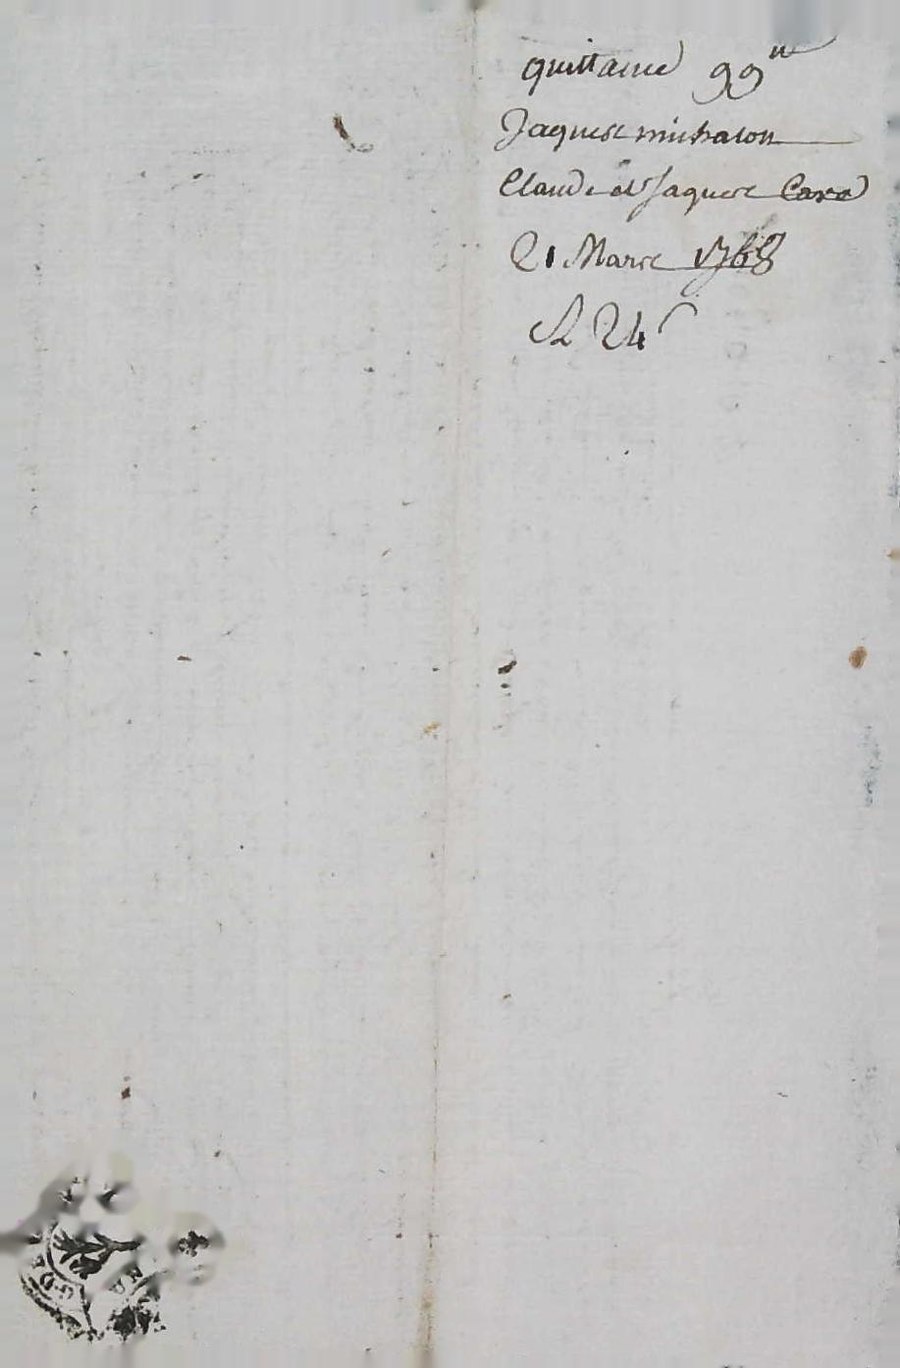 quittance 99ᵗᵗ
Jaques michalon
Claude et Jaques Cara
21 Mars 1768
24ˢ
G·DE